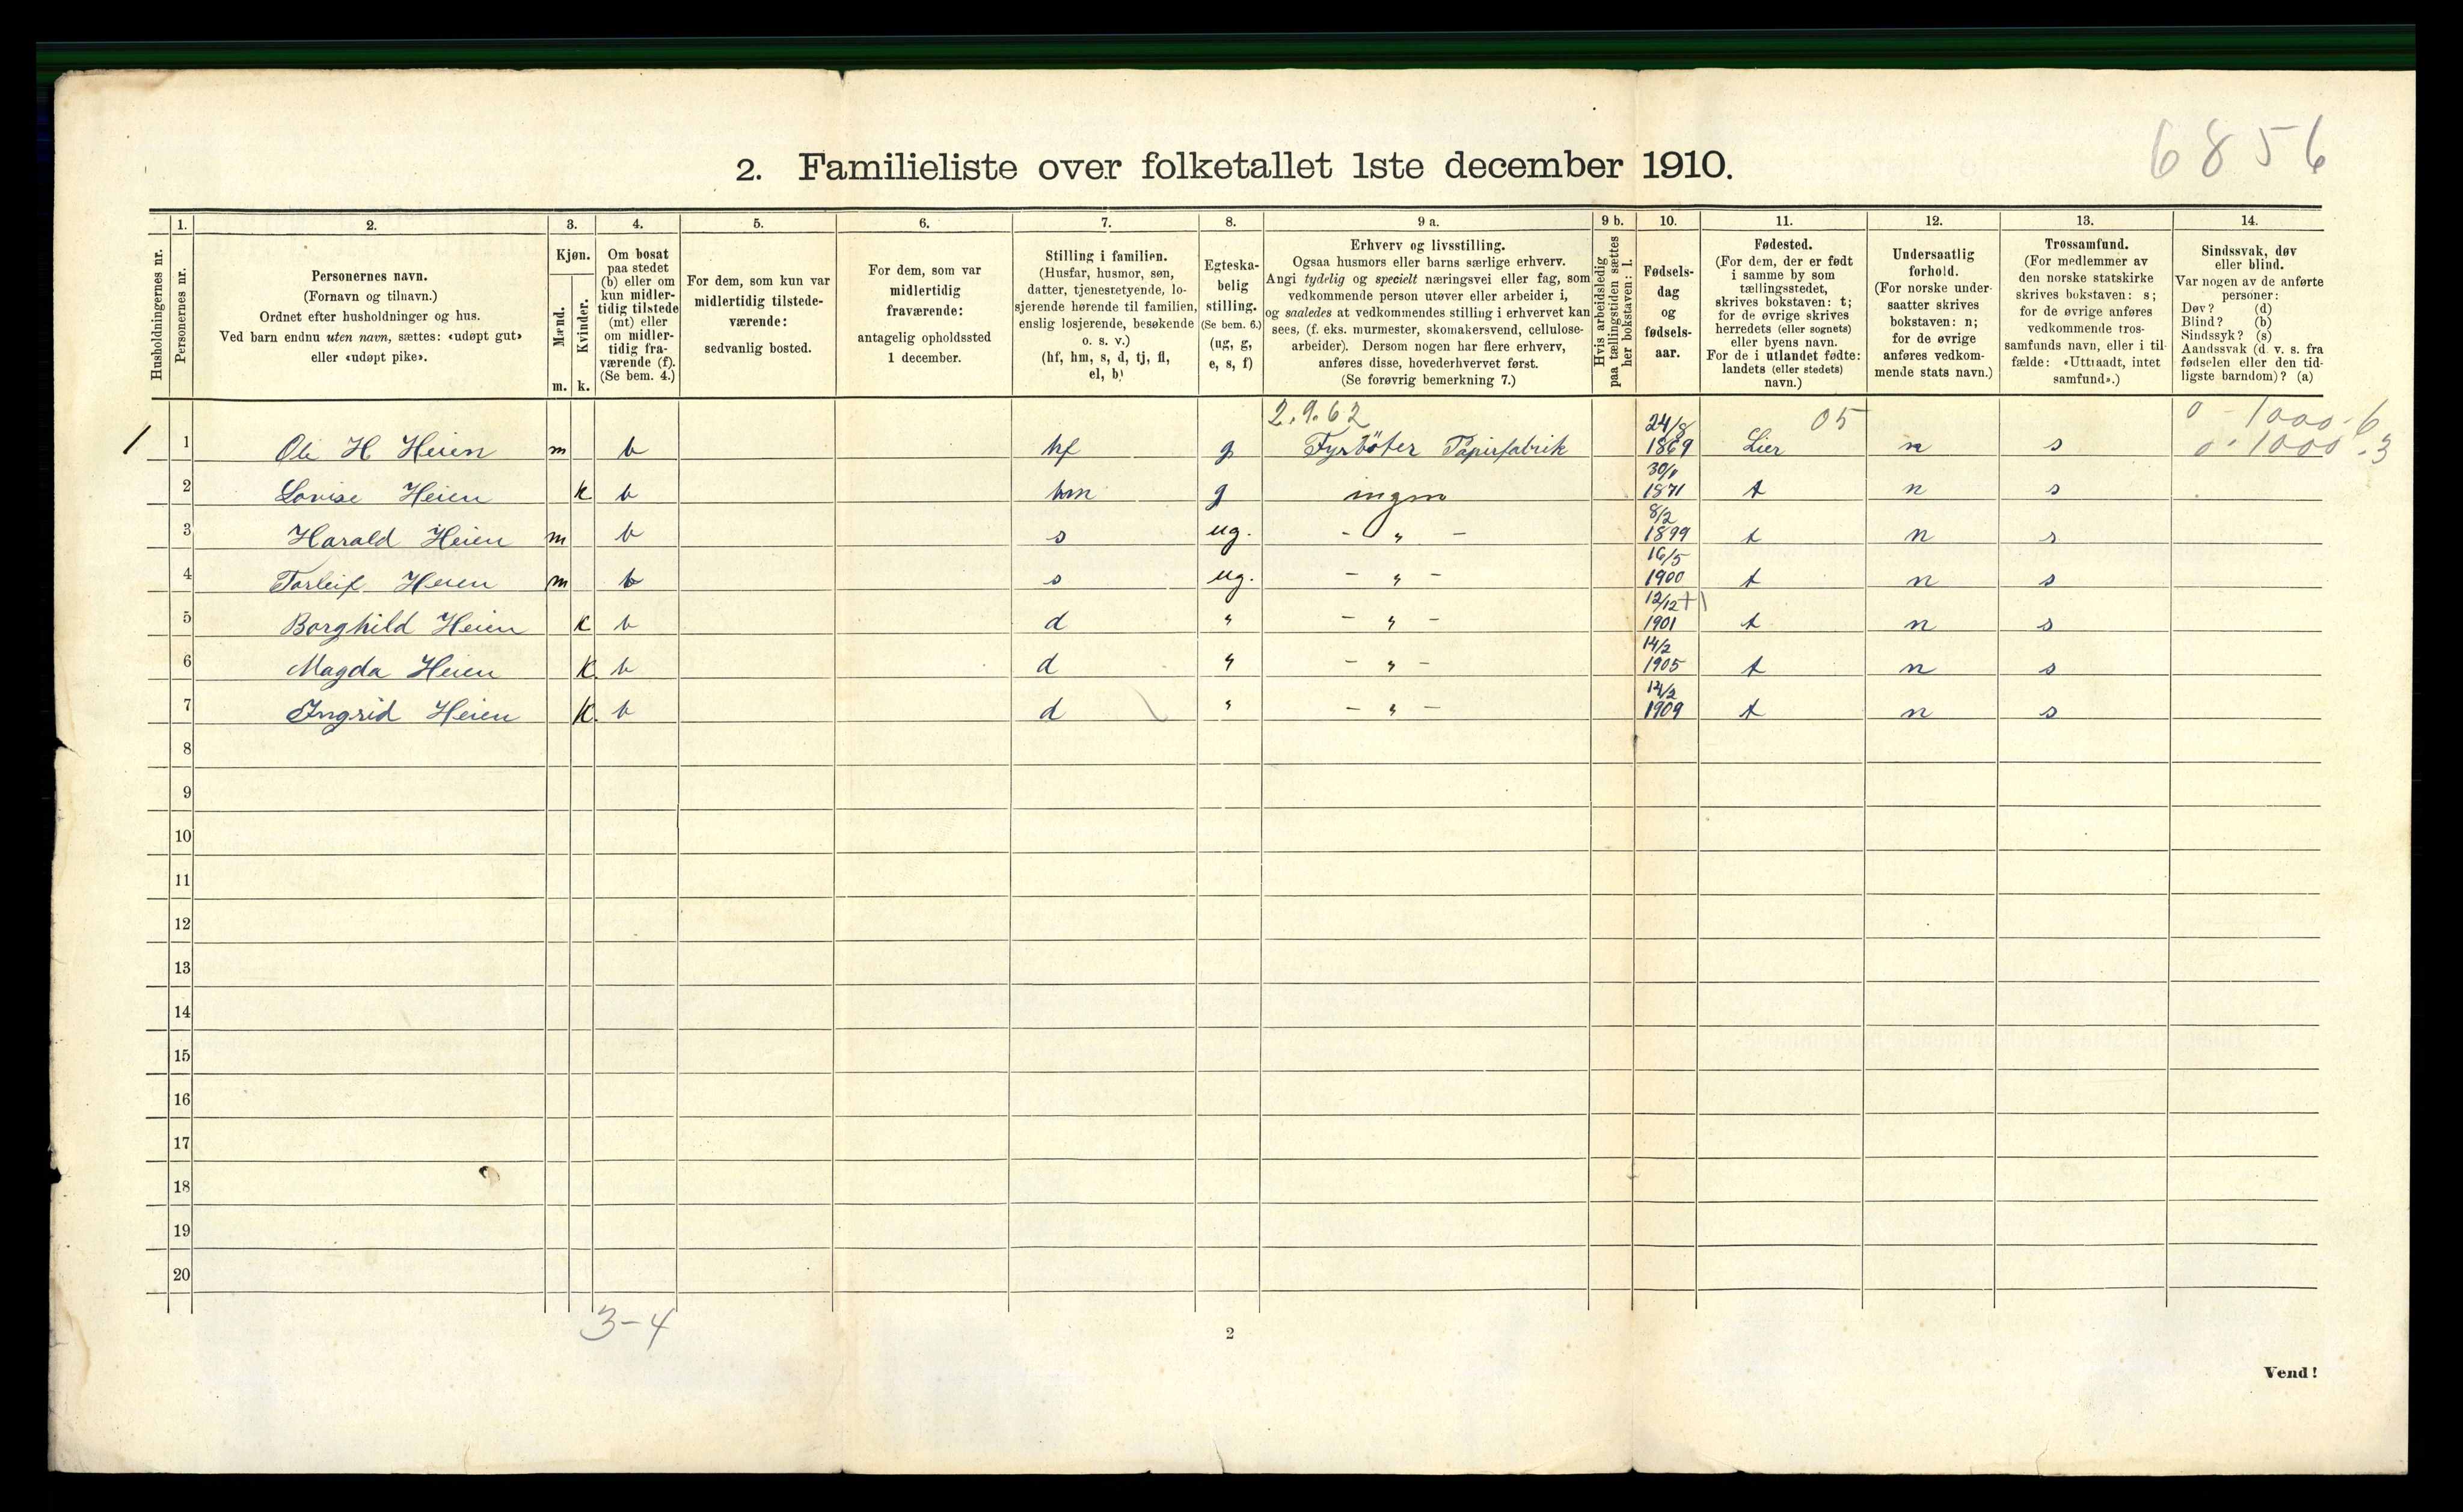 6856
2. Familieliste over folketallet 1ste december 1910.
Husholdningernes nr.
1.
Personernes nr.
2.
Personernes navn.
(Fornavn og tilnavn.)
Ordnet efter husholdninger og hus.
Ved barn endnu uten navn, sættes: «udøpt gut»
eller «udøpt pike».
3.
Kjøn.
Mænd.
Kvinder.
m. k.
4.
Om bosat
paa stedet
(b) eller om
kun midler-
tidig tilstede
(mt) eller
om midler-
tidig fra-
værende (f).
(Se bem. 4.)
5.
For dem, som kun var
midlertidig tilstede-
værende:
sedvanlig bosted.
6.
For dem, som var
midlertidig
fraværende:
antagelig opholdssted
1 december.
7.
Stilling i familien.
(Husfar, husmor, søn,
datter, tjenestetyende, lo-
sjerende hørende til familien,
enslig losjerende, besøkende
o. s. v.)
(hf, hm, s, d, tj, fl,
el, b)
8.
Egteska-
belig
stilling.
(Se bem. 6.)
(ug, g,
e, s, f)
9 a.
Erhverv og livsstilling.
Ogsaa husmors eller barns særlige erhverv.
Angi tydelig og specielt næringsvei eller fag, som
vedkommende person utøver eller arbeider i,
og saaledes at vedkommendes stilling i erhvervet kan
sees, (f. eks. murmester, skomakersvend, cellulose-
arbeider). Dersom nogen har flere erhverv,
anføres disse, hovederhvervet først.
(Se forøvrig bemerkning 7.)
9 b.
Hvis arbeidsledig
paa tællingstiden sættes
her bokstaven: l.
10.
Fødsels-
dag
og
fødsels-
aar.
11.
Fødested.
(For dem, der er født
i samme by som
tællingsstedet,
skrives bokstaven: t;
for de øvrige skrives
herredets (eller sognets)
eller byens navn.
For de i utlandet fødte:
landets (eller stedets)
navn.)
12.
Undersaatlig
forhold.
(For norske under-
saatter skrives
bokstaven: n;
for de øvrige
anføres vedkom-
mende stats navn.)
13.
Trossamfund.
(For medlemmer av
den norske statskirke
skrives bokstaven: s;
for de øvrige anføres
vedkommende tros-
samfunds navn, eller i til-
fælde: «Uttraadt, intet
samfund».)
14.
Sindssvak, døv
eller blind.
Var nogen av de anførte
personer:
Døv? (d)
Blind? (b)
Sindssyk? (s)
Aandssvak (d. v. s. fra
fødselen eller den tid-
ligste barndom)? (a)
2.9.62 05 0-1000-6
1 1 Ole H Heien m b hf g Fyrböter Papirfabrik 24/8 1869 Lier n s 0-1000-3
2 Lovise Heien k b hm g ingen 1871 t n s
3 Harald Heien m b s ug. - „ - 8/2 1899 t n s
4 Torleif Heien m b s ug. - „ - 16/5 1900 t n s
5 Borghild Heien k b d „ - „ - 12/12 1901 t n s
6 Magda Heien k b d „ - „ - 14/2 1905 t n s
7 Ingrid Heien k b d „ - „ - 1909 t n s
8
9
10
11
12
13
14
15
16
17
18
19
20
3-4
2
Vend!